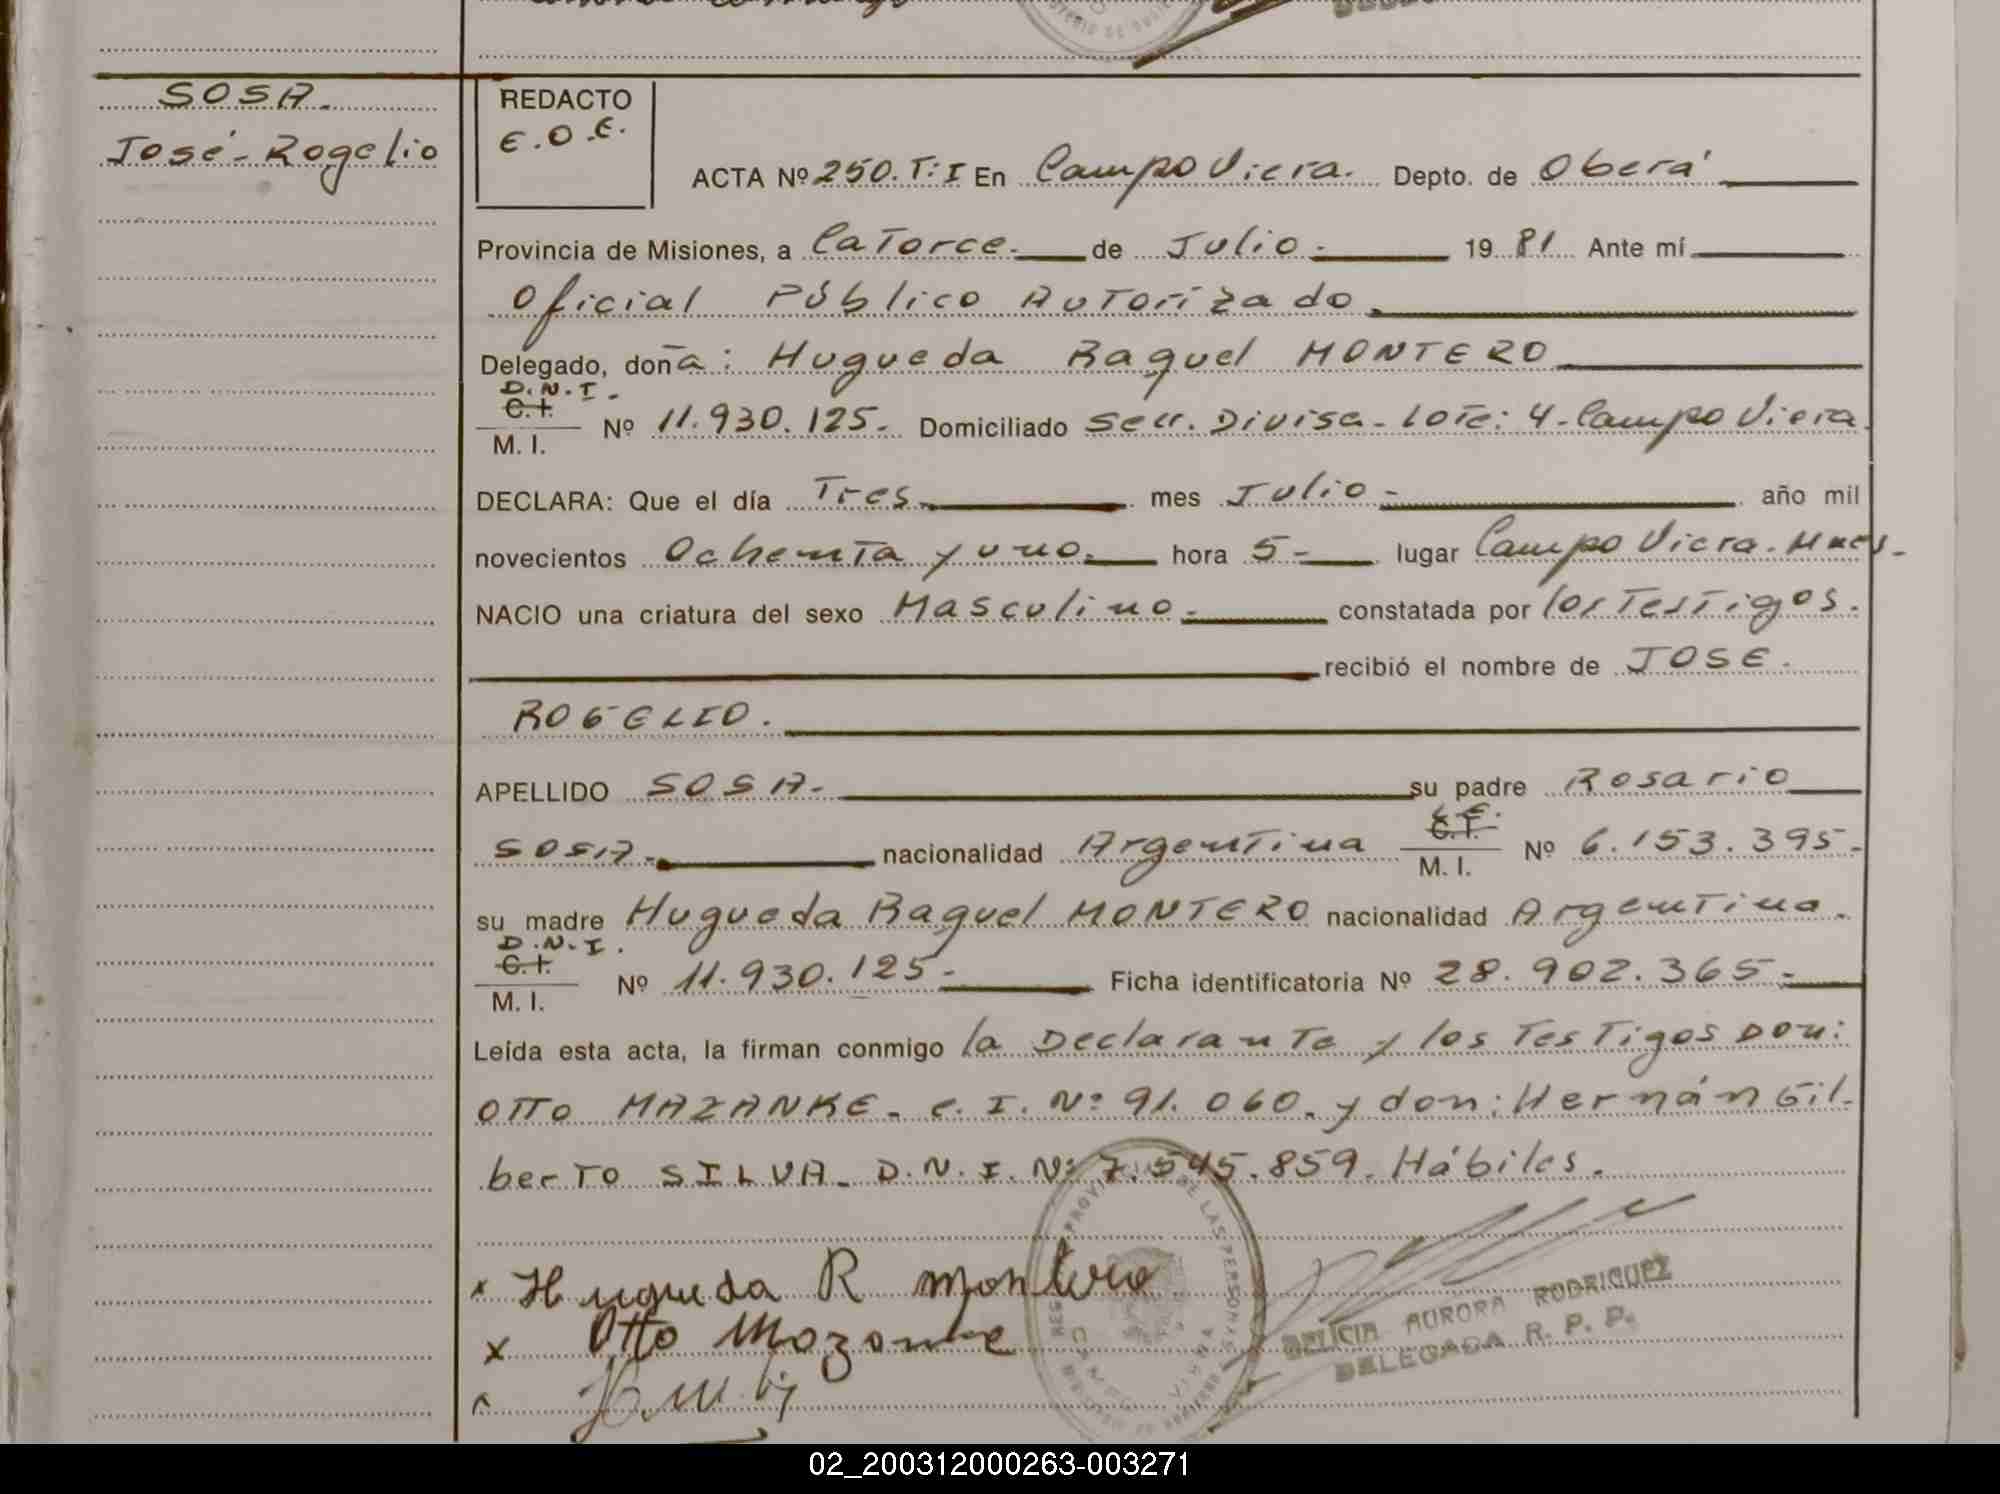 SOSA.
José-Rogelio
REDACTO
E.O.E.
ACTA Nº 250.T:I En Campo Viera. Depto. de Oberá
Provincia de Misiones, a Catorce.- de Julio.- 1981 Ante mí
Oficial Público Autorizado
Delegado, doña: Hugueda Raquel MONTERO
D.N.I.
C.I.
M. I. Nº 11.930.125.- Domiciliado Secc. Divisa- Lote: 4-Campo Viera.
DECLARA: Que el día Tres mes Julio- año mil
novecientos Ochenta y uno. hora 5- lugar Campo Viera. Mnes-
NACIO una criatura del sexo Masculino.- constatada por los Testigos.
recibió el nombre de JOSE.
ROGELIO.
APELLIDO SOSA.- su padre Rosario
L.E.
C.I.
SOSA.- nacionalidad Argentina M. I. Nº 6.153.395-
su madre Hugueda Raquel MONTERO nacionalidad Argentina.
D.N.I.
C.I.
M. I. Nº 11.930.125- Ficha identificatoria Nº 28.902.365-
Leída esta acta, la firman conmigo la Declarante y los Testigos Don:
OTTO MAZANKE- C.I. Nº 91.060. y don: Hernán Gil-
berto SILVA- D.N.I. Nº 7.545.859. Hábiles.
x Hugueda R montero
x Otto Mozonke
PROVIN DE LAS PERSONAS
CAMPO VIERA
DELICIA AURORA RODRIGUEZ
DELEGADA R. P. P.
02_200312000263-003271